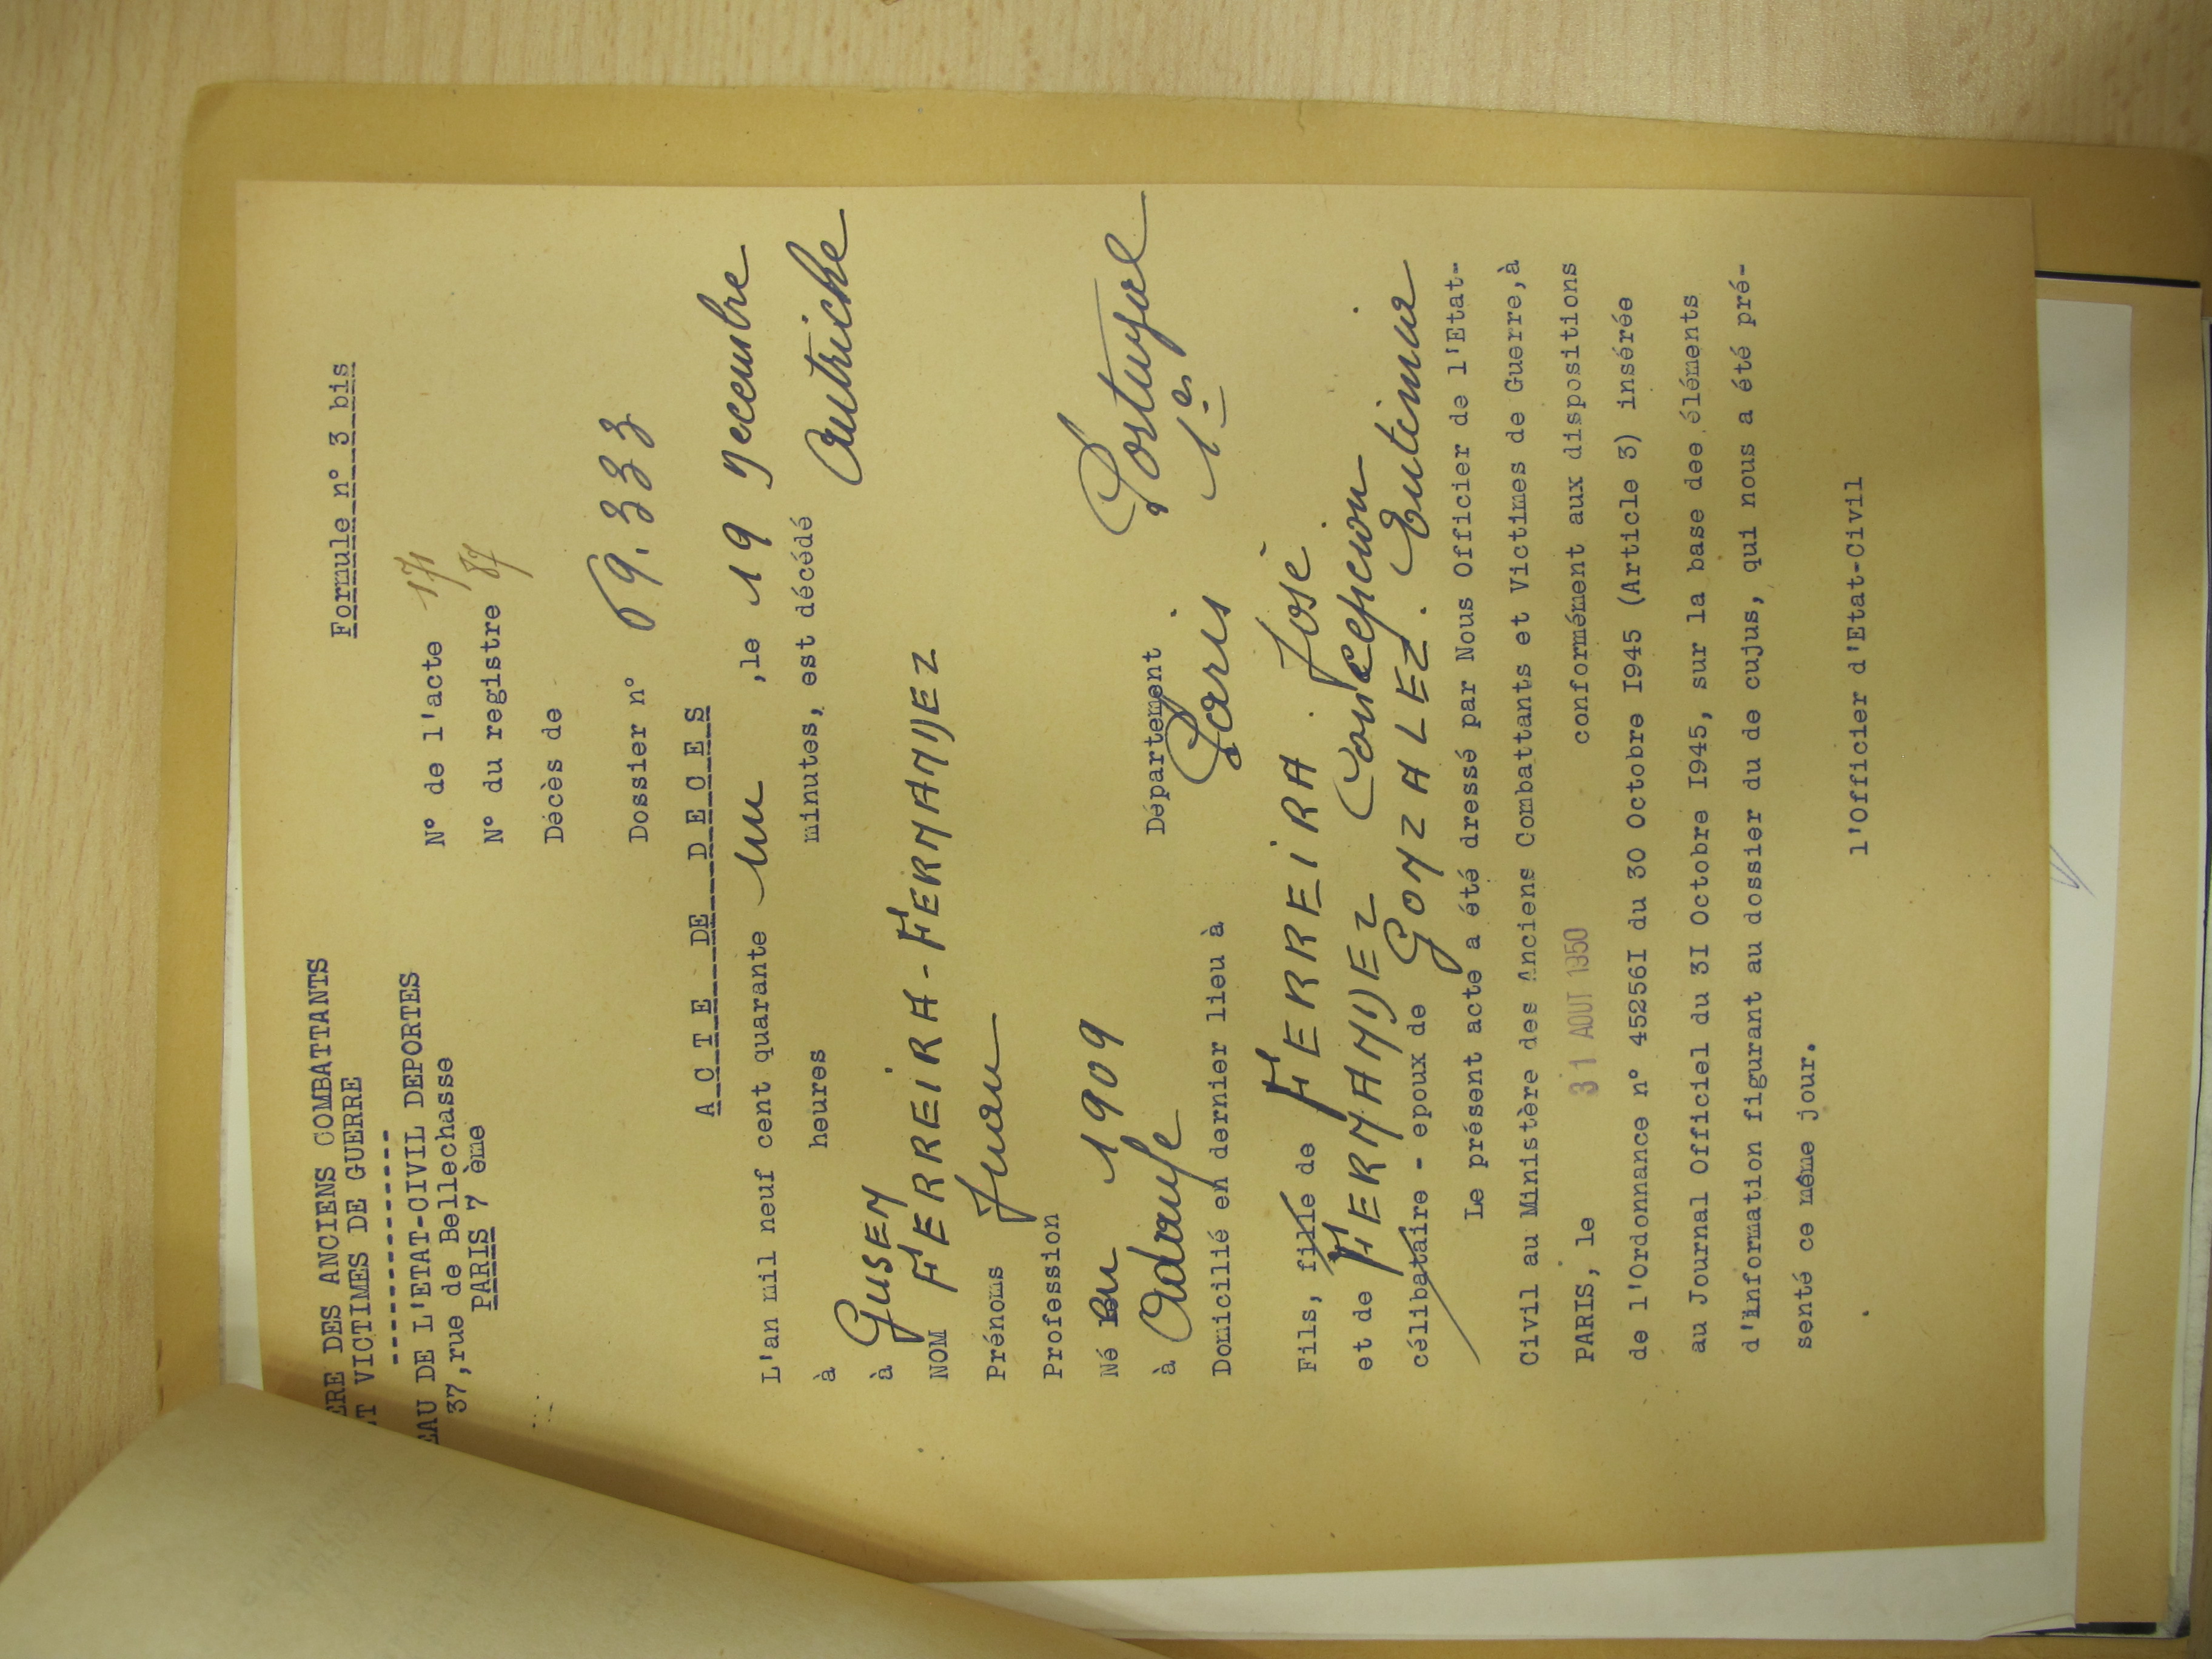 Formule n° 3 bis
ERE DES ANCIENS COMBATTANTS
ET VICTIMES DE GUERRE
---------------
EAU DE L'ETAT-CIVIL DEPORTES
37, rue de Bellechasse
PARIS 7 ème
N° de l'acte 171
N° du registre 87
Décès de
Dossier n° 69.333
ACTE DE DECES
L'an mil neuf cent quarante un ,le 19 Decembre
à heures minutes, est décédé
à GUSEN Autriche
NOM FERREIRA-FERNANDEZ
Prénoms Juan
Profession
Né en 1909
à Adaufe Département Portugal
Domicilié en dernier lieu à Paris 1er
Fils, fille de FERREIRA José
et de FERNANDEZ Concepcion
célibataire - epoux de GONZALEZ. Eutimia
Le présent acte a été dressé par Nous Officier de l'Etat-
Civil au Ministère des Anciens Combattants et Victimes de Guerre,à
PARIS, le 31 AOUT 1950 conformément aux dispositions
de l'Ordonnance n° 45256I du 30 Octobre I945 (Article 3) insérée
au Journal Officiel du 3I Octobre I945, sur la base dee éléments
d'information figurant au dossier du de cujus, qui nous a été pré-
senté ce même jour.
l'Officier d'Etat-Civil